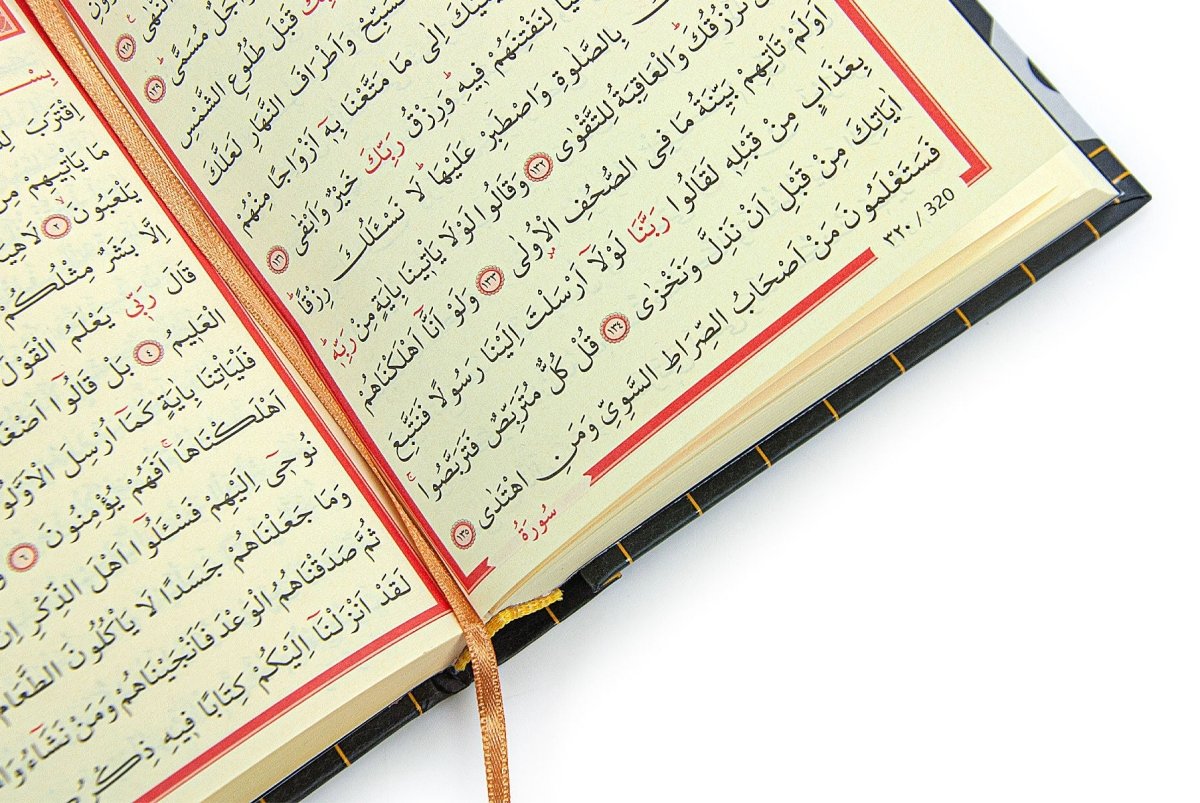 النُّهٰى ﴿١٢٨﴾
مُسَمًّى ﴿١٢٩﴾
رَبِّكَ قَبْلَ طُلُوعِ الشَّمْسِ
فَسَبِّحْ وَاَطْرَافَ النَّهَارِ لَعَلَّكَ
اِلٰى مَا مَتَّعْنَا بِهٖٓ اَزْوَاجًا مِنْهُمْ
لِنَفْتِنَهُمْ فٖيهِ وَرِزْقُ رَبِّكَ خَيْرٌ وَاَبْقٰى ﴿١٣١﴾
بِالصَّلٰوةِ وَاصْطَبِرْ عَلَيْهَا لَا نَسْـَٔلُكَ رِزْقًا
نَرْزُقُكَ وَالْعَاقِبَةُ لِلتَّقْوٰى ﴿١٣٢﴾ وَقَالُوا لَوْلَا يَأْتٖينَا بِاٰيَةٍ مِنْ رَبِّهٖ
اَوَلَمْ تَأْتِهِمْ بَيِّنَةُ مَا فِي الصُّحُفِ الْاُولٰى ﴿١٣٣﴾ وَلَوْ اَنَّٓا اَهْلَكْنَاهُمْ
بِعَذَابٍ مِنْ قَبْلِهٖ لَقَالُوا رَبَّنَا لَوْلَٓا اَرْسَلْتَ اِلَيْنَا رَسُولًا فَنَتَّبِعَ
اٰيَاتِكَ مِنْ قَبْلِ اَنْ نَذِلَّ وَنَخْزٰى ﴿١٣٤﴾ قُلْ كُلٌّ مُتَرَبِّصٌ فَتَرَبَّصُوا
فَسَتَعْلَمُونَ مَنْ اَصْحَابُ الصِّرَاطِ السَّوِيِّ وَمَنِ اهْتَدٰى ﴿١٣٥﴾
٣٢٠ / 320
سُورَةُ
بِسْ
اِقْتَرَبَ
مَا يَأْتٖيهِمْ مِنْ
يَلْعَبُونَ ﴿٢﴾ لَاهِيَةً
اِلَّا بَشَرٌ مِثْلُكُمْ
قَالَ رَبّٖي يَعْلَمُ الْقَوْلَ
الْعَلٖيمُ ﴿٤﴾ بَلْ قَالُٓوا اَضْغَا
فَلْيَأْتِنَا بِاٰيَةٍ كَمَٓا اُرْسِلَ الْاَوَّلُو
اَهْلَكْنَاهَا اَفَهُمْ يُؤْمِنُونَ ﴿٦﴾
نُوحٖٓي اِلَيْهِمْ فَسْـَٔلُٓوا اَهْلَ الذِّكْرِ اِنْ
وَمَا جَعَلْنَاهُمْ جَسَدًا لَا يَأْكُلُونَ الطَّعَامَ
ثُمَّ صَدَقْنَاهُمُ الْوَعْدَ فَاَنْجَيْنَاهُمْ وَمَنْ نَشَٓاءُ
لَقَدْ اَنْزَلْنَٓا اِلَيْكُمْ كِتَابًا فٖيهِ ذِكْرُ